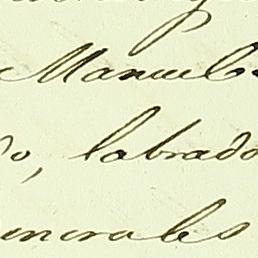 Manuel
do, labrado
enerales